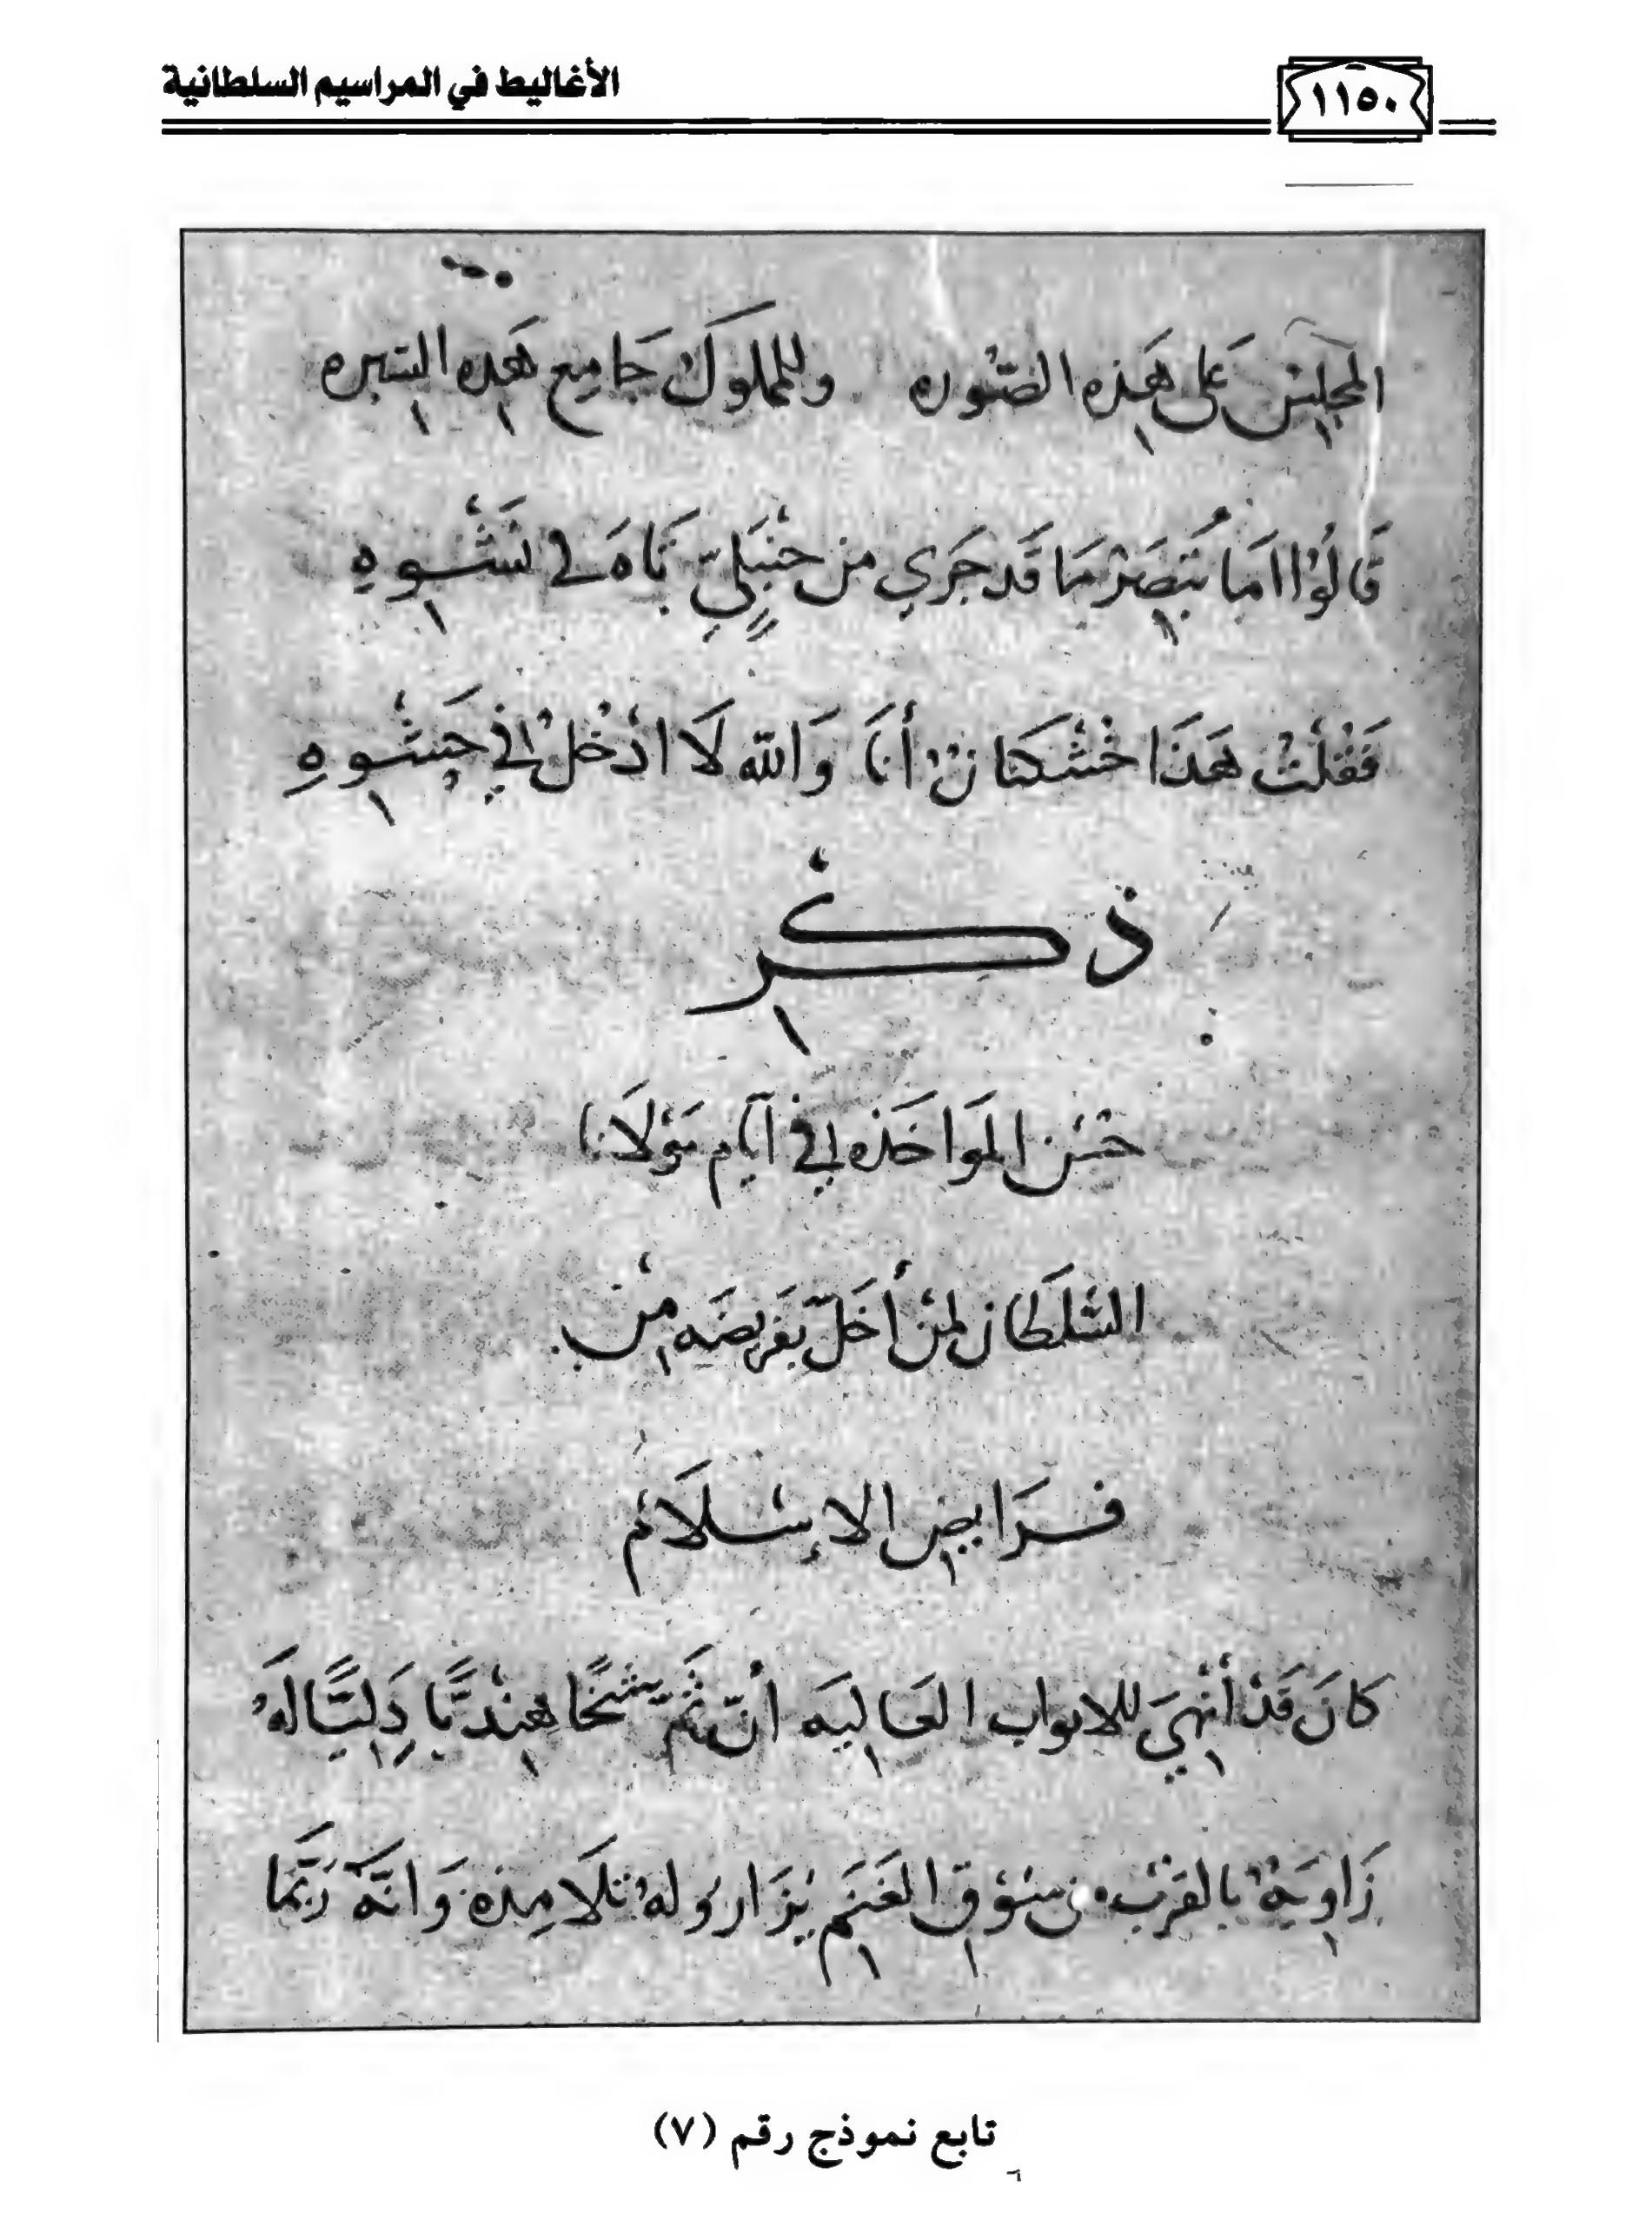 ١١٥٠
الأغاليط في المراسيم السلطانية
المجلِسْ عَلى هَذِه الصّوُره وللمملوك جَامِع هَذه السّيره
قَالُوْا امَا تُبصِرْ مَا قَد جَرَي مِن حَنْبَلِيٍّ تَاهَ في نَشْوِهِ
فَقُلْتُ هَذَا خُشْكَنَانٌ أنَا وَالله لَا ادْخُلُ في حَشْوِهِ
ذكْر
حُسْن المَواخَذه في آيَّام مَوْلَانا
السُّلطَان لِمَنْ أخَلَّ بفَريضَه مِنْ
فَرَايضِ الاِسْلَامْ
كانَ قَدْ أُنْهِيَ للابواب العَاليَه أنّ ثَمَّ شَيْخًا هِنْديًّا دَلِيًّا لَهُ
زَاوِيَةٌ بالقرْب من سُوْق الغَنَم يُزَار وَلهُ تَلَامِذه وَانَّهُ رُبَّمَا
تابع نموذج رقم (٧)